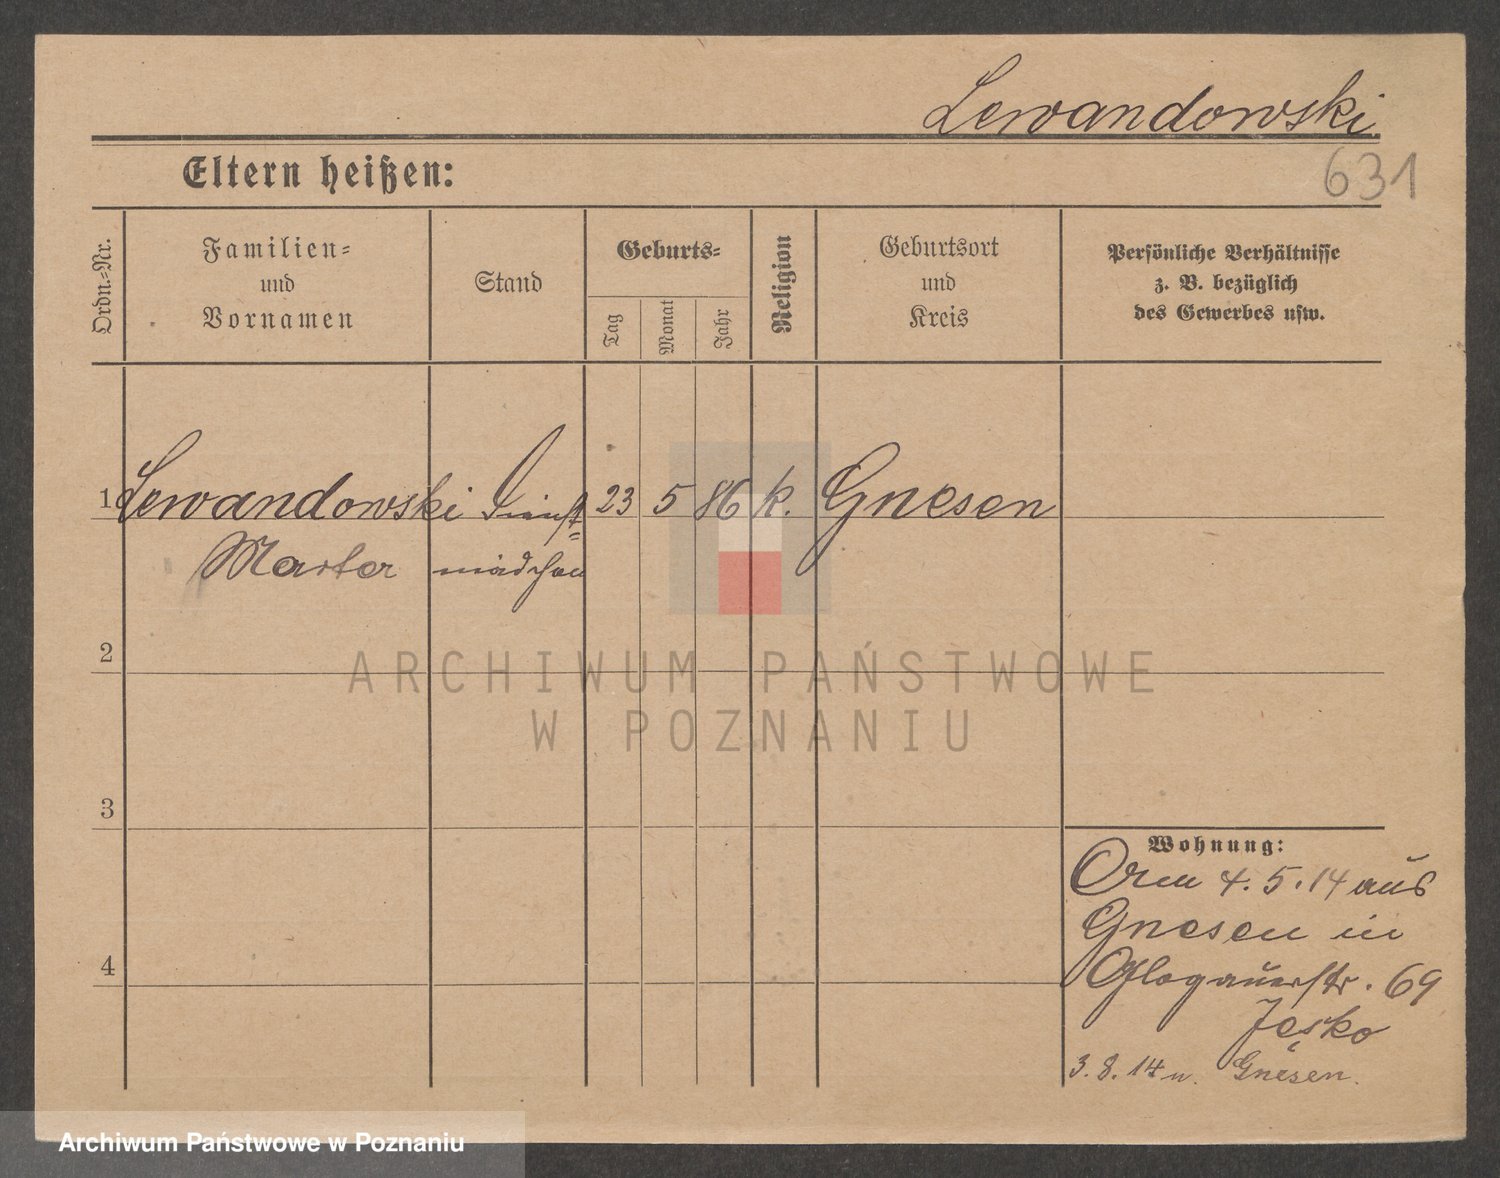 Lewandowski
631
Eltern heißen:
Ordn.-Nr.
Familien-
und
Vornamen
Stand
Geburts-
Tag
Monat
Jahr
Religion
Geburtsort
und
Kreis
Persönliche Verhältnisse
z. B. bezüglich
des Gewerbes usw.
1 Lewandowski Dienst= 23 5 86 k. Gnesen
mädchen
2
ARCHIWUM PAŃSTWOWE
W POZNANIU
3
Wohnung:
4. 5. 14 aus
Gnesen in
4 Glogauerstr. 69
Jesko
3. 8. 14 n. Gnesen.
Archiwum Państwowe w Poznaniu